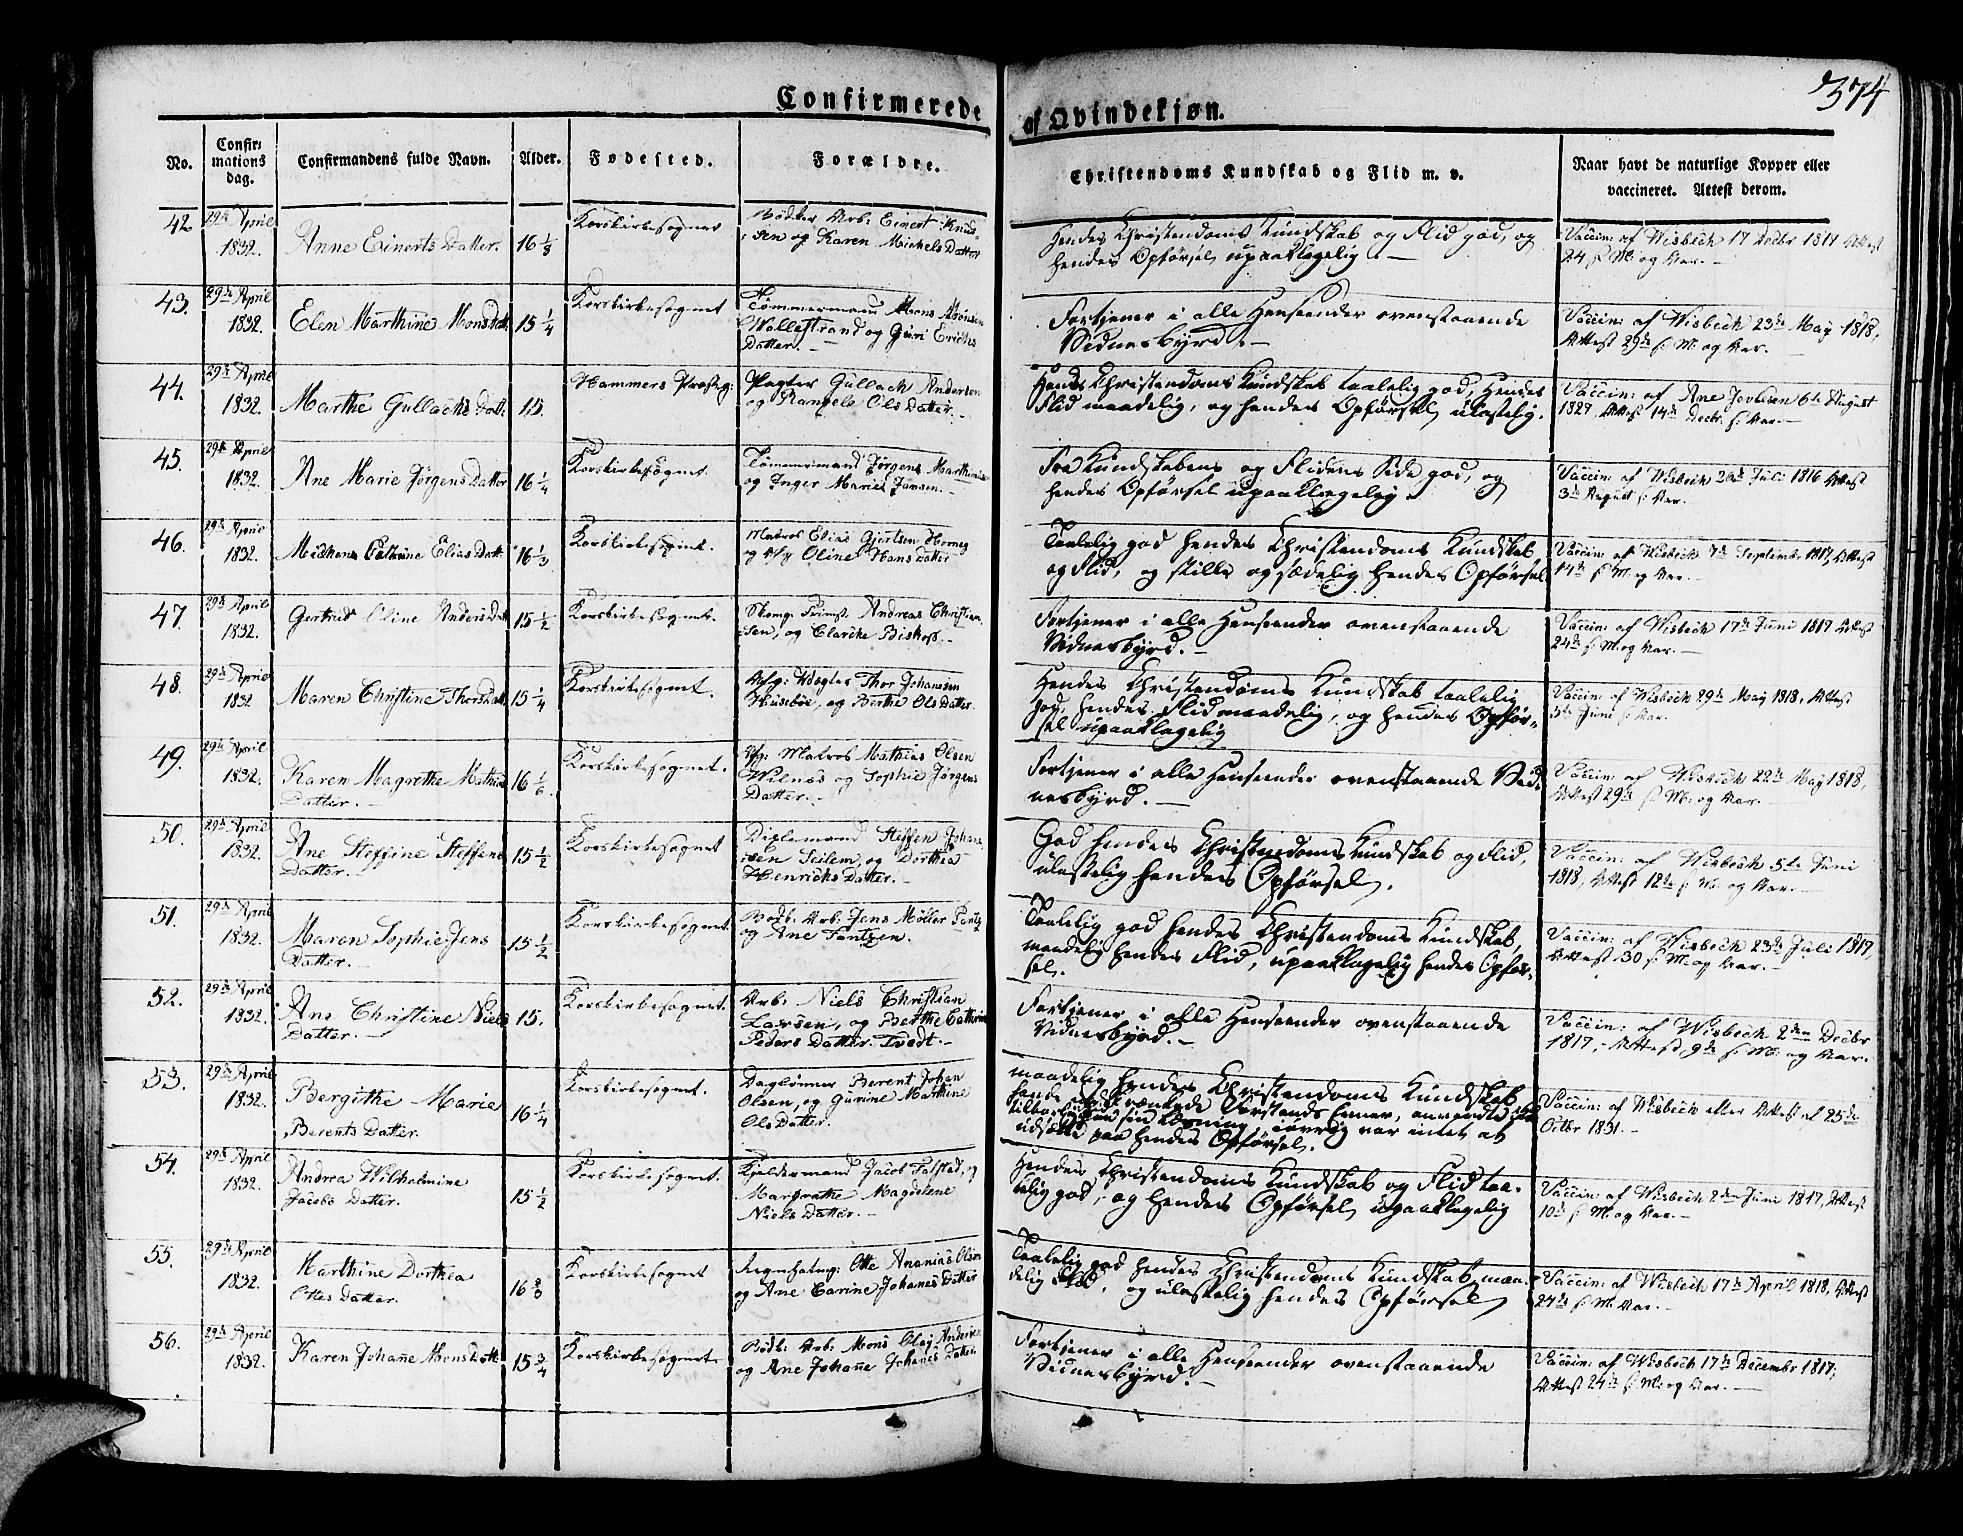 374
Confirmerede af Qvindekjøn.
No. Confirmationsdag. Confirmandens fulde Navn. Alder. Fødested. Forældre. Christendoms Kundskab og Flid m. v. Naar havt de naturlige Kopper eller vaccineret. Attest derom.
42 29de April 1832. Anne Einerts Datter. 16 1/3 Korskirkesognet Bødker Arb: Einert Knudsen og Karen Michels Datter Hendes Christendoms Kundskab og Flid god, og hendes Opførsel upaaklagelig. Vaccin: af Wisbech 17 Decbr 1817 Attest 24 s: M: og Var.
43. 29de April 1832. Elen Marthine Mons Datt. 15 1/4 Korskirkesognet Tømmermand Mons Monsen Wallestrand og Guri Erichs Datter. Fortjener i alle Henseender ovenstaaende Vidnesbyrd. Vaccin: af Wisbech 23de May 1818, Attest 29de s: M: og Var.
44. 29de April 1832. Marthe Gullachs Datt. 15. Hammers Præsteg: Pagter Gullach Andersen og Ols Datter. Hendes Christendoms Kundskab taalelig god, Hendes Flid maadelig, og hendes Opførsel ulastelig. Vaccin: af Ane 6te August 1827 Attest 14de Decbr. s: Var.
45. 29de April 1832. Ane Marie Jørgens Datter 16 1/4 Korskirkesognet. Tømmermand Jørgens og Inger Marie Jansen. Fra Kundskabens og Flidens Side god, og hendes Opførsel upaaklagelig. Vaccin af Wisbech Juli 1816 Attest 3de August s: Var.
46. 29de April 1832. Cathrine Elias Datt. 16 1/3 Korskirkesognet. Matros Elias Gjertsen Hornes og Oline Hans Datter Taalelig god hendes Christendoms Kundskab og Flid, og stille og sædelig hendes Opførsel Vaccin: af Wisbech 7de September 1817, Attest 14de s: M: og Var.
47. 29de April 1832. Gertrud Oline Anders Datt. 15 1/2 Korskirkesognet. Skomg. Andreas Christiansen, og Fortjener i alle Henseender ovenstaaende Vidnesbyrd. Vaccin: af Wisbech 17de Juni 1817 Attest 24de s: M: og Var.
48. 29de April 1832 Maren Christine Thors Datt. 15 1/4 Korskirkesognet. Thor Johansen Husebøe, og Berthe Ols Datter. Hendes Christendoms Kundskab taalelig god, hendes Flid maadelig, og hendes Opførsel upaaklagelig Vaccin: af Wisbech 29de May 1818, Attest 5te Juni s: Var.
49. 29de April 1832. Karen Magrethe Mathias Datter. 16 1/6. Korskirkesognet. Afg: Matros Mathias Olsen og Sophie Jørgens Datter. Fortjener i alle Henseender ovenstaaende Vidnesbyrd. Vaccin: af Wisbech 22de May 1818, Attest 29de s: M: og Var.
50. 29de April 1832. Ane Steffine Steffens Datter. 15 1/2 Korskirkesognet Steffen Johansen Seilem, og Dorthea Henrichs Datter. God hendes Christendoms Kundskab og Flid, ulastelig hendes Opførsel. Vaccin: af Wisbech 5te Juni 1818, Attest 12te s: M: og Var.
51. 29de April 1832. Maren Sophie Jens Datter. 15 1/2 Korskirkesognet. Bødk: Arb: Jens Møller og Ane Fantzen. Taalelig god hendes Christendoms Kundskab, maadelig hendes Flid, upaaklagelig hendes Opførsel. Vaccin: af Wisbech 23de Juli 1819, Attest 30 s: M: og Var.
52. 29de April 1832. Ane Christine Niels Datter. 15. Korskirkesognet. Arb: Niels Christian Larsen, og Berthe Cathrine Peders Datter Tvedt. Fortjener i alle Henseender ovenstaaende Vidnesbyrd. Vaccin: af Wisbech 2den Decbr 1817, Attest 9de s: M: og Var.
53. 29de April 1832. Bergithe Marie Berents Datter. 16 1/4 Korskirkesognet. Daglønner Berent Johan Olsen, og Gurine Marthine Ols Datter. maadelig hendes Christendoms Kundskab, Forstands Evner, anvendte iøvrig var intet at udsætte paa hendes Opførsel. Vaccin: af Wisbech efter Attest af 25de Octbr 1831.
54. 29de April 1832. Andrea Wilhelmine Jacobs Datter. 15 1/2 Korskirkesognet. Kjeldermand Jacob Falsted, og Margrethe Magdelene Niels Datter. Hendes Christendoms Kundskab og Flid taalelig god, og hendes Opførsel upaaklagelig Vaccin: af Wisbech 2den Juni 1817, Attest 10de s: M: og Var.
55. 29de April 1832. Marthine Dorthea Ottes Datter. 16 2/3 Korskirkesognet Otte Ananias Olsen og Ane Carine Johanes Datter Taalelig god hendes Christendoms Kundskab, maadelig Flid, og ulastelig hendes Opførsel Vaccin: af Wisbech 17de April 1818, Attest 24de s: M: Var.
56. 29de April 1832. Karen Johañe Mons Datt. 15 3/4 Korskirkesognet. Bødk: Arb: Mons Olaj Andersen og Ane Johañe Johanes Datter. Fortjener i alle Henseender ovenstaaende Vidnesbyrd. Vaccin: af Wisbech 17de Decembr 1817; Attest 24de s: M: og Var.